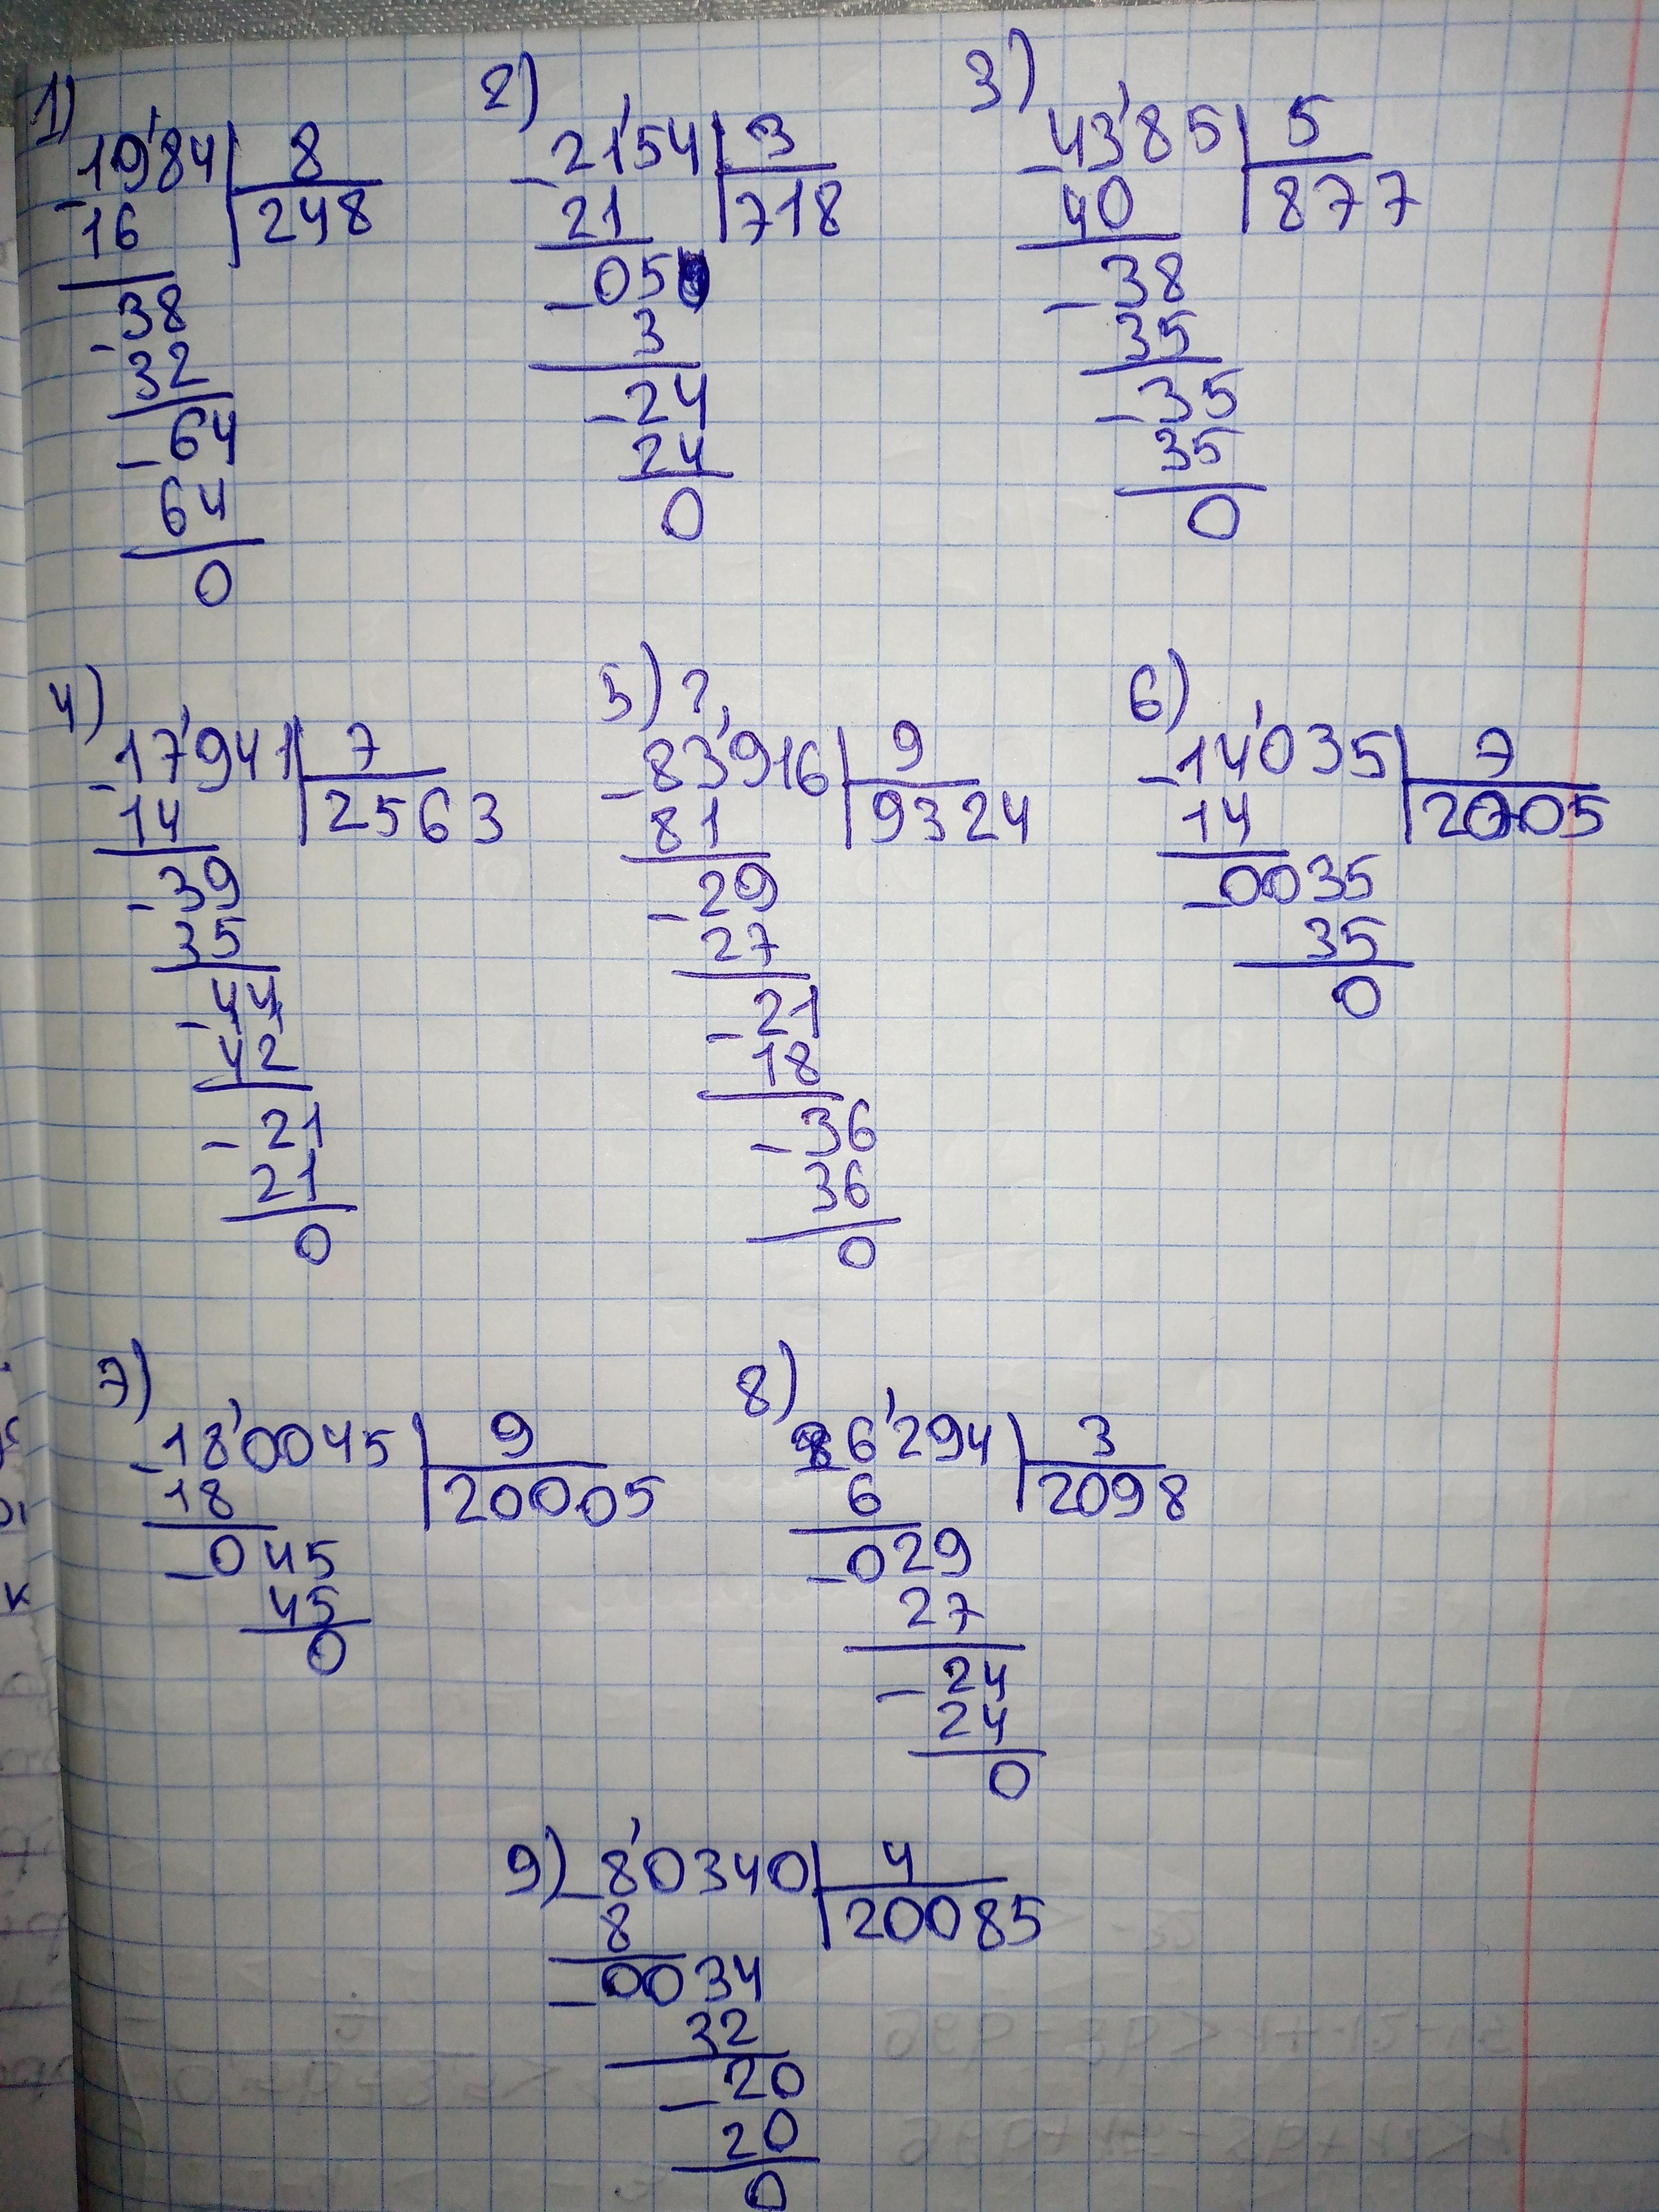 1) 2) 3)
19'84 | 8 21'54 | 3 43'85 | 5
- 16 | 248 - 21 | 718 - 40 | 877
- 38 - 05 - 38
32 3 35
- 64 - 24 - 35
64 24 35
0 0 0
4) 5) ? 6)
17'941 | 7 83'916 | 9 14'035 | 7
- 14 | 2563 - 81 | 9324 - 14 | 2005
- 39 - 29 - 0035
35 27 35
- 44 - 21 0
42 18
- 21 - 36
21 36
0 0
7) 8)
18'0045 | 9 6'294 | 3
- 18 | 20005 - 6 | 2098
- 045 - 029
45 27
0 - 24
24
0
9) - 8'0340 | 4
8 | 20085
- 0034
32
- 20
20
0